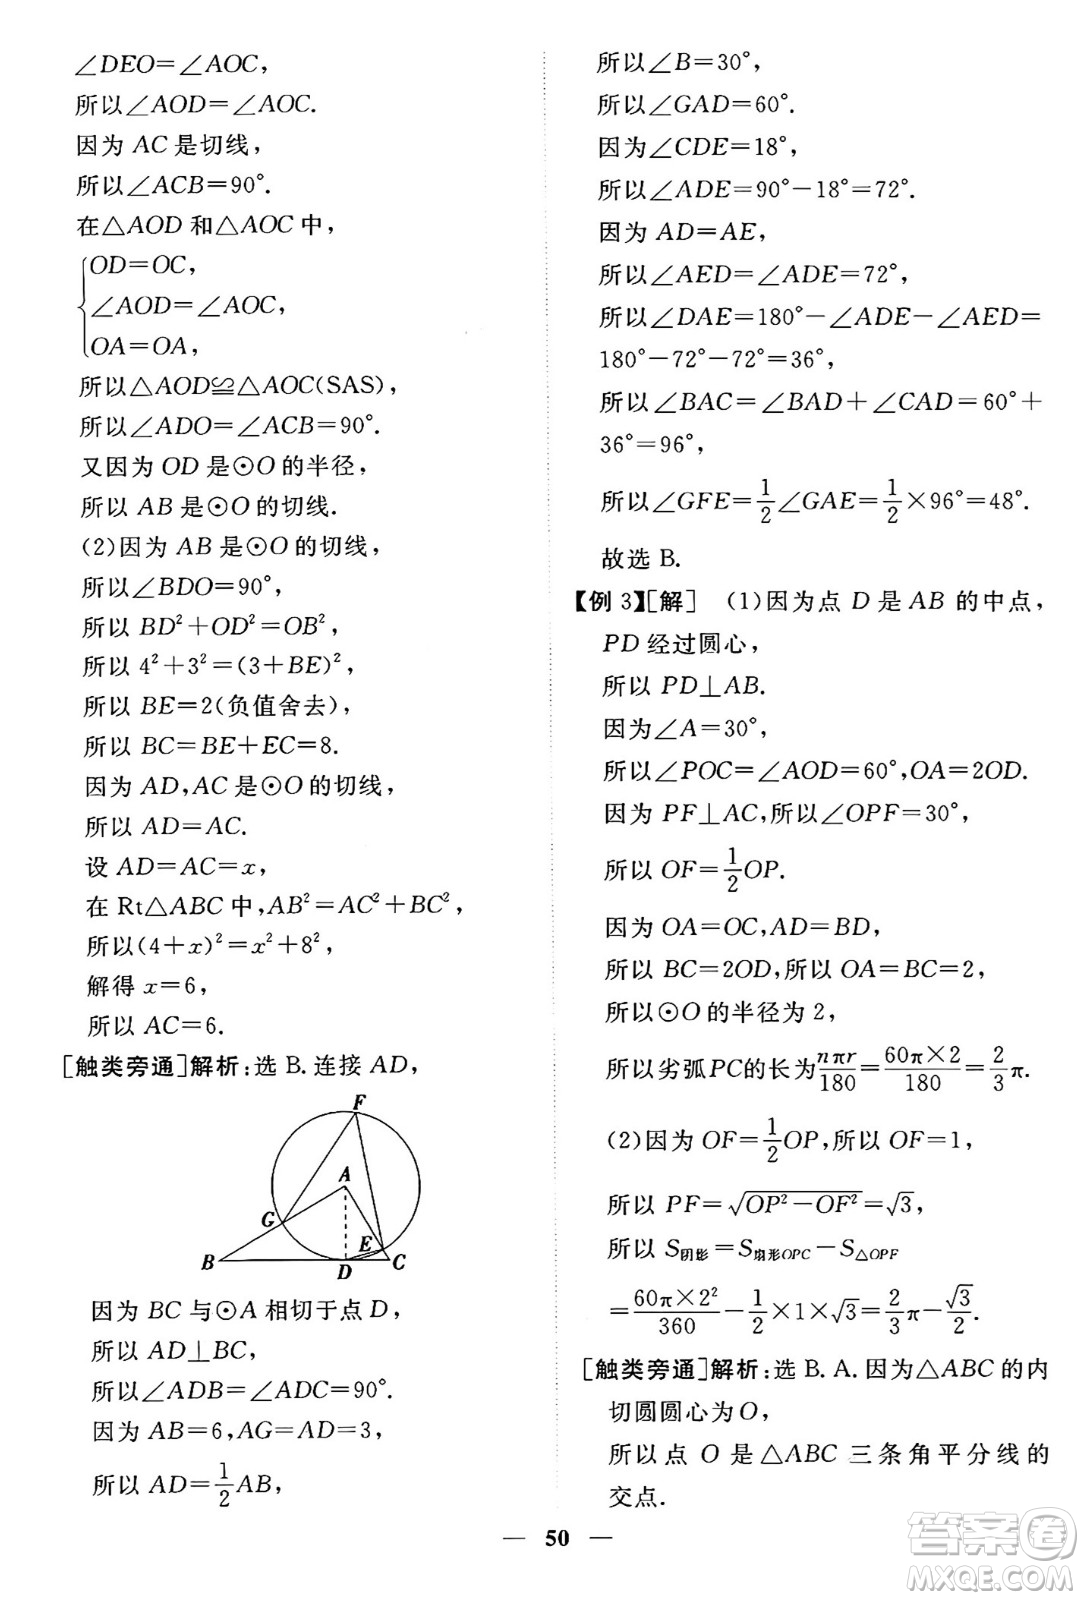 ∠DEO=∠AOC,
所以∠AOD=∠AOC.
因为 AC 是切线,
所以∠ACB=90°.
在△AOD 和△AOC 中,
OD=OC,
∠AOD=∠AOC,
OA=OA,
所以△AOD≌△AOC(SAS),
所以∠ADO=∠ACB=90°.
又因为 OD 是⊙O 的半径,
所以 AB 是⊙O 的切线.
(2)因为 AB 是⊙O 的切线,
所以∠BDO=90°,
所以 BD²+OD²=OB²,
所以 4²+3²=(3+BE)²,
所以 BE=2(负值舍去),
所以 BC=BE+EC=8.
因为 AD,AC 是⊙O 的切线,
所以 AD=AC.
设 AD=AC=x,
在 Rt△ABC 中,AB²=AC²+BC²,
所以(4+x)²=x²+8²,
解得 x=6,
所以 AC=6.
[触类旁通]解析:选 B.连接 AD,
F
A
G
E
B
D
C
因为 BC 与⊙A 相切于点 D,
所以 AD⊥BC,
所以∠ADB=∠ADC=90°.
因为 AB=6,AG=AD=3,
所以 AD=1/2AB,
所以∠B=30°,
所以∠GAD=60°.
因为∠CDE=18°,
所以∠ADE=90°-18°=72°.
因为 AD=AE,
所以∠AED=∠ADE=72°,
所以∠DAE=180°-∠ADE-∠AED=
180°-72°-72°=36°,
所以∠BAC=∠BAD+∠CAD=60°+
36°=96°,
所以∠GFE=1/2∠GAE=1/2×96°=48°.
故选 B.
【例 3】[解] (1)因为点 D 是 AB 的中点,
PD 经过圆心,
所以 PD⊥AB.
因为∠A=30°,
所以∠POC=∠AOD=60°,OA=2OD.
因为 PF⊥AC,所以∠OPF=30°,
所以 OF=1/2OP.
因为 OA=OC,AD=BD,
所以 BC=2OD,所以 OA=BC=2,
所以⊙O 的半径为 2,
所以劣弧PC的长为nπr/180=60π×2/180=2/3π.
(2)因为 OF=1/2OP,所以 OF=1,
所以 PF=√(OP²-OF²)=√3,
所以 S阴影=S扇形OPC-S△OPF
=60π×2²/360-1/2×1×√3=2/3π-√3/2.
[触类旁通]解析:选 B.A.因为△ABC 的内
切圆圆心为 O,
所以点 O 是△ABC 三条角平分线的
交点.
— 50 —
答案圈
MXQE.COM